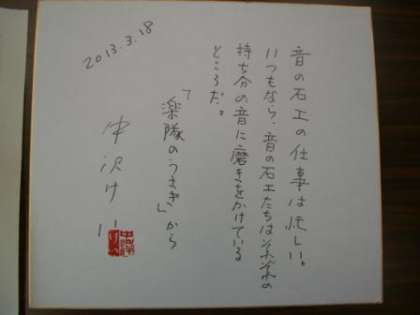 音の石工の仕事は忙しい。
いつもなら、音の石工たちは菜菜の
持ち分の音に磨きをかけている
ところだ。
「楽隊のうさぎ」から
2013.3.18
中沢けい